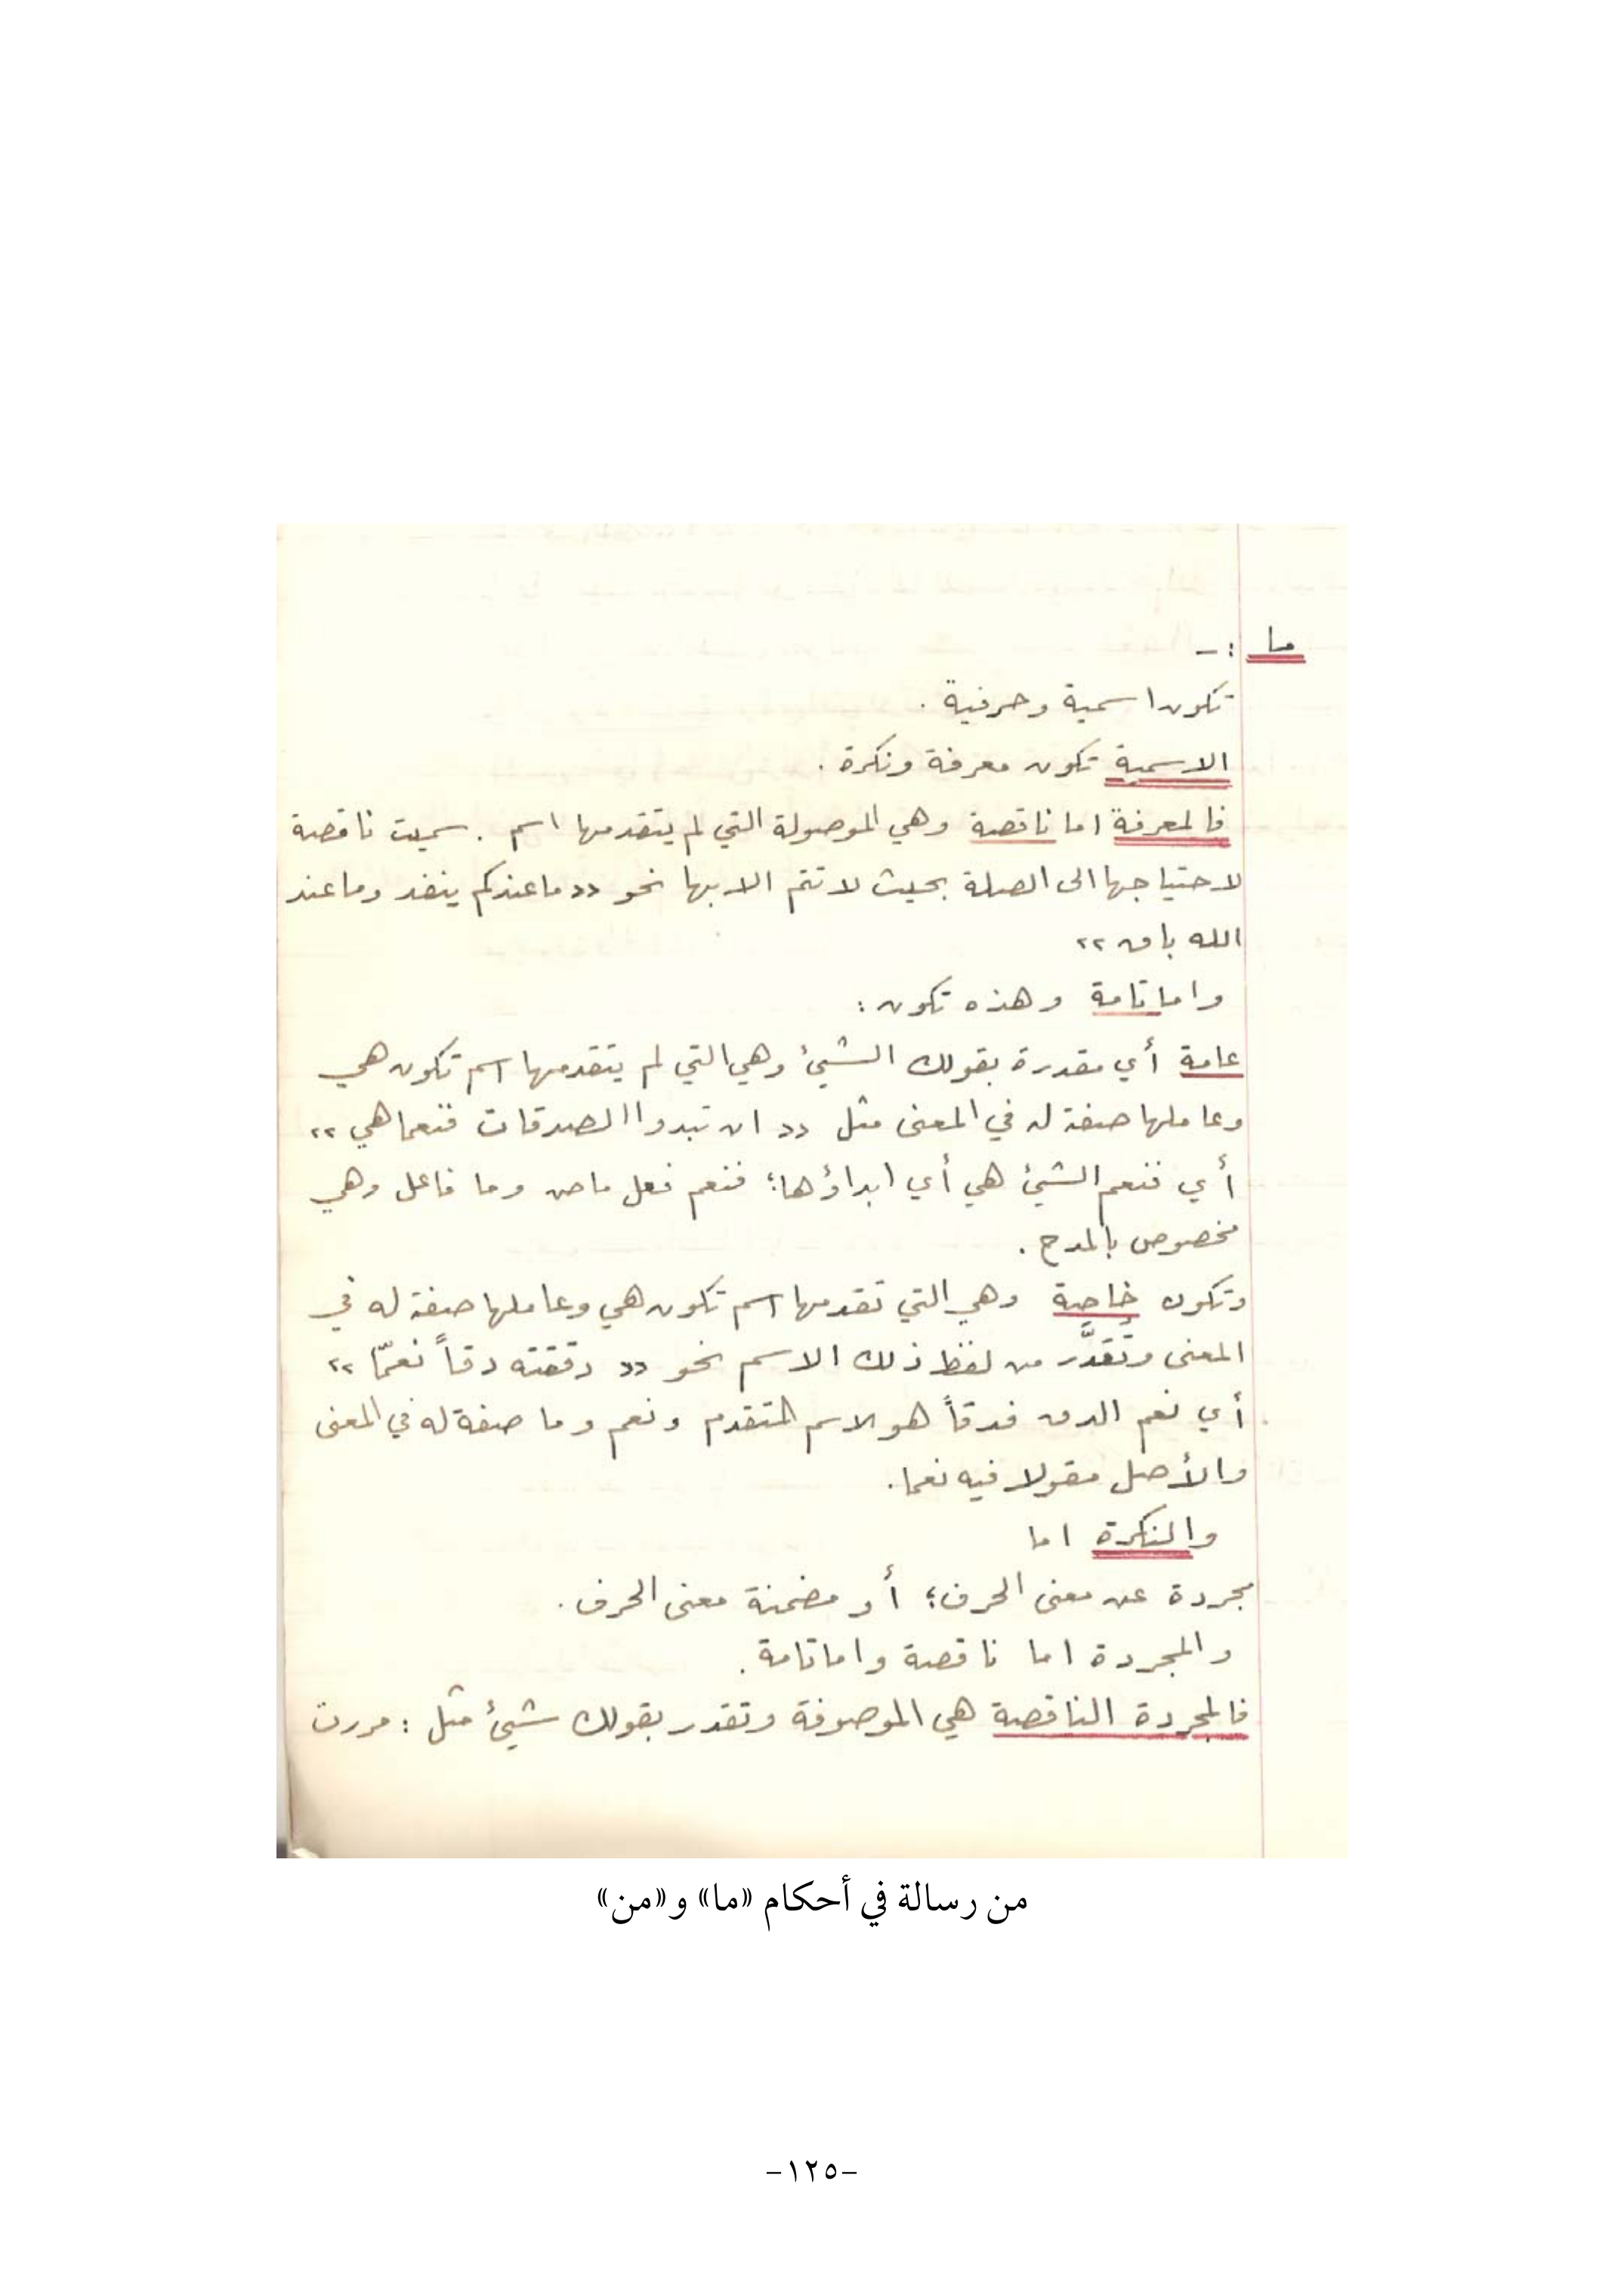 ما :-
تكون اسمية وحرفية .
الاسمية تكون معرفة ونكرة .
فالمعرفة اما ناقصة وهي الموصولة التي لم يتقدمها اسم . سميت ناقصة
لاحتياجها الى الصلة بحيث لا تتم الا بها نحو «ما عندكم ينفد وما عند
الله باق»
واما تامة وهذه تكون :
عامة أي مقدرة بقولك الشيئ وهي التي لم يتقدمها اسم تكون هي
وعاملها صفة له في المعنى مثل «ان تبدوا الصدقات فنعما هي»
أي فنعم الشيئ هي أي ابداؤها؛ فنعم فعل ماض وما فاعل وهي
مخصوص بالمدح .
وتكون خاصة وهي التي تقدمها اسم تكون هي وعاملها صفة له في
المعنى وتُقدَّر من لفظ ذلك الاسم نحو «دققته دقاً نعمّا»
أي نعم الدق فدقاً هو الاسم المتقدم ونعم وما صفة له في المعنى
والأصل مقولا فيه نعما .
والنكرة اما
مجردة عن معنى الحرف؛ أو مضمنة معنى الحرف .
والمجردة اما ناقصة واما تامة .
فالمجردة الناقصة هي الموصوفة وتقدر بقولك شيئ مثل : مررت
من رسالة في أحكام «ما» و«من»
-١٢٥-